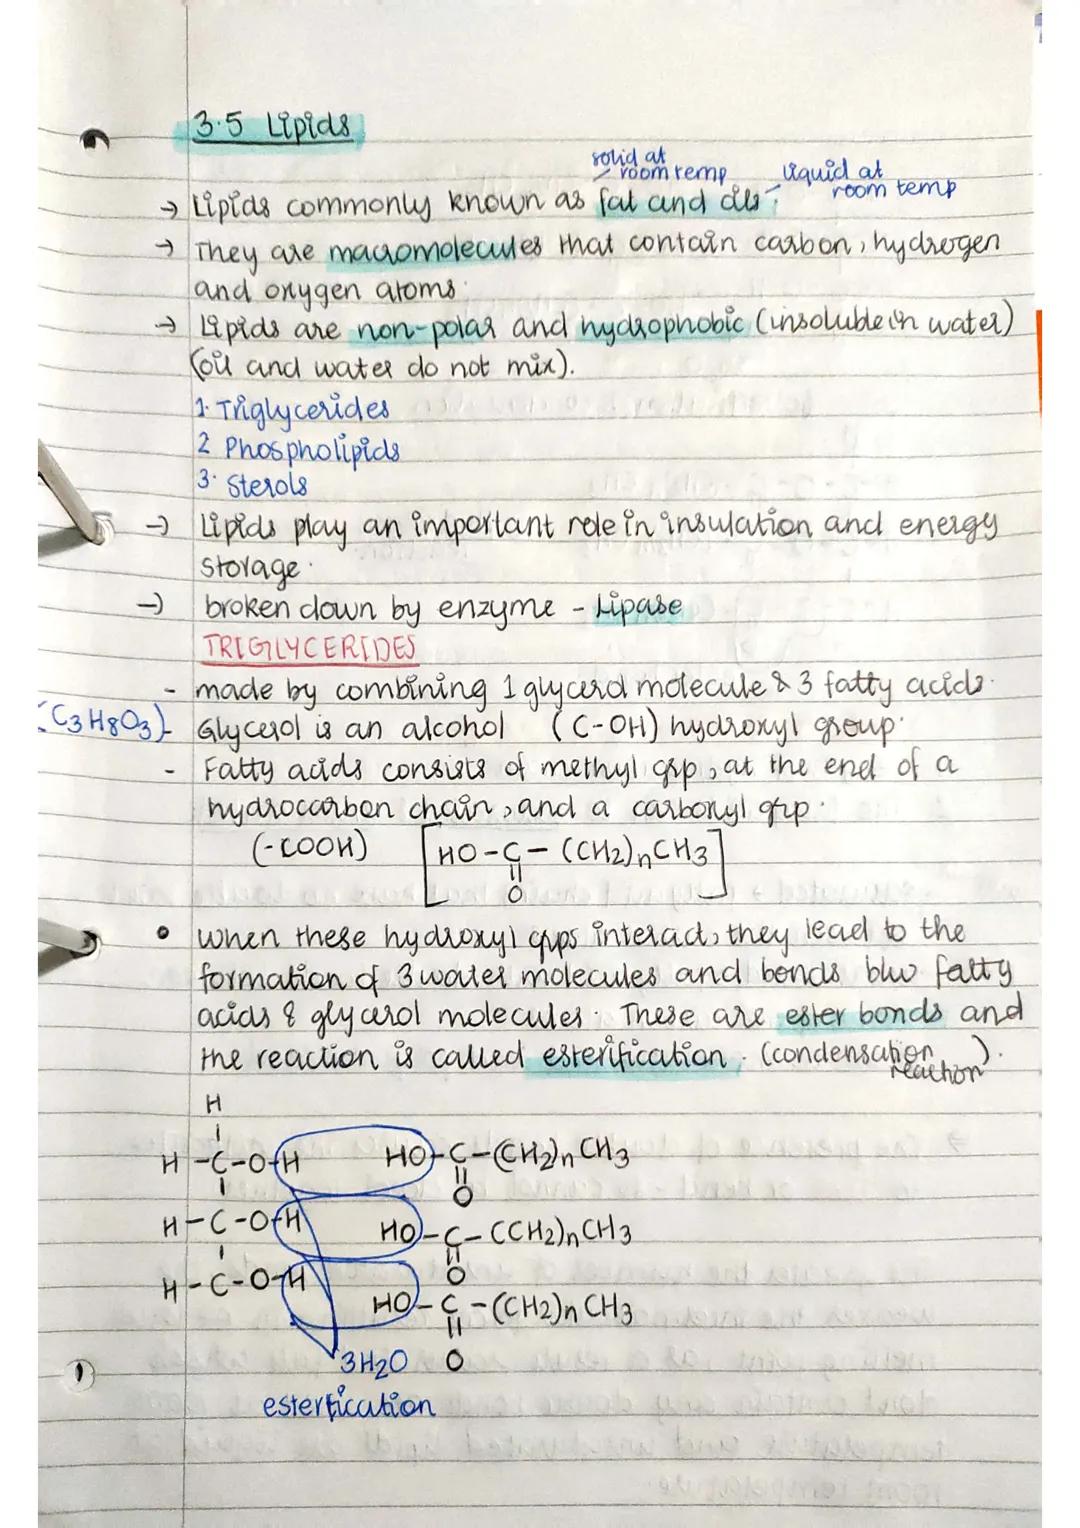 3.5 Lipids
solid at
room temp
liquid at
room temp
→ Lipids commonly known as fat and oils.
→ They are macromolecules that contain carbon, hydrogen
and oxygen atoms.
→ Lipids are non-polar and hydrophobic (insoluble in water)
(oil and water do not mix).
1. Triglycerides
2 Phospholipids
3. Sterols
→ Lipids play an important role in insulation and energy
storage.
→ broken down by enzyme - Lipase
TRIGLYCERIDES
- made by combining 1 glycerol molecule & 3 fatty acids.
(C3H8O3) - Glycerol is an alcohol (C-OH) hydroxyl group.
- Fatty acids consists of methyl grp, at the end of a
hydrocarbon chain, and a carbonyl grp.
(-COOH) [HO-C-(CH2)nCH3]
||
O
• When these hydroxyl grps interact, they lead to the
formation of 3 water molecules and bonds b/w fatty
acids & glycerol molecules. These are ester bonds and
the reaction is called esterification. (condensation
reaction).
H
|
H-C-O-H HO-C-(CH2)nCH3
| ||
O
H-C-O-H HO-C-(CH2)nCH3
| ||
O
H-C-O-H HO-C-(CH2)nCH3
||
3H2O O
esterfication
1